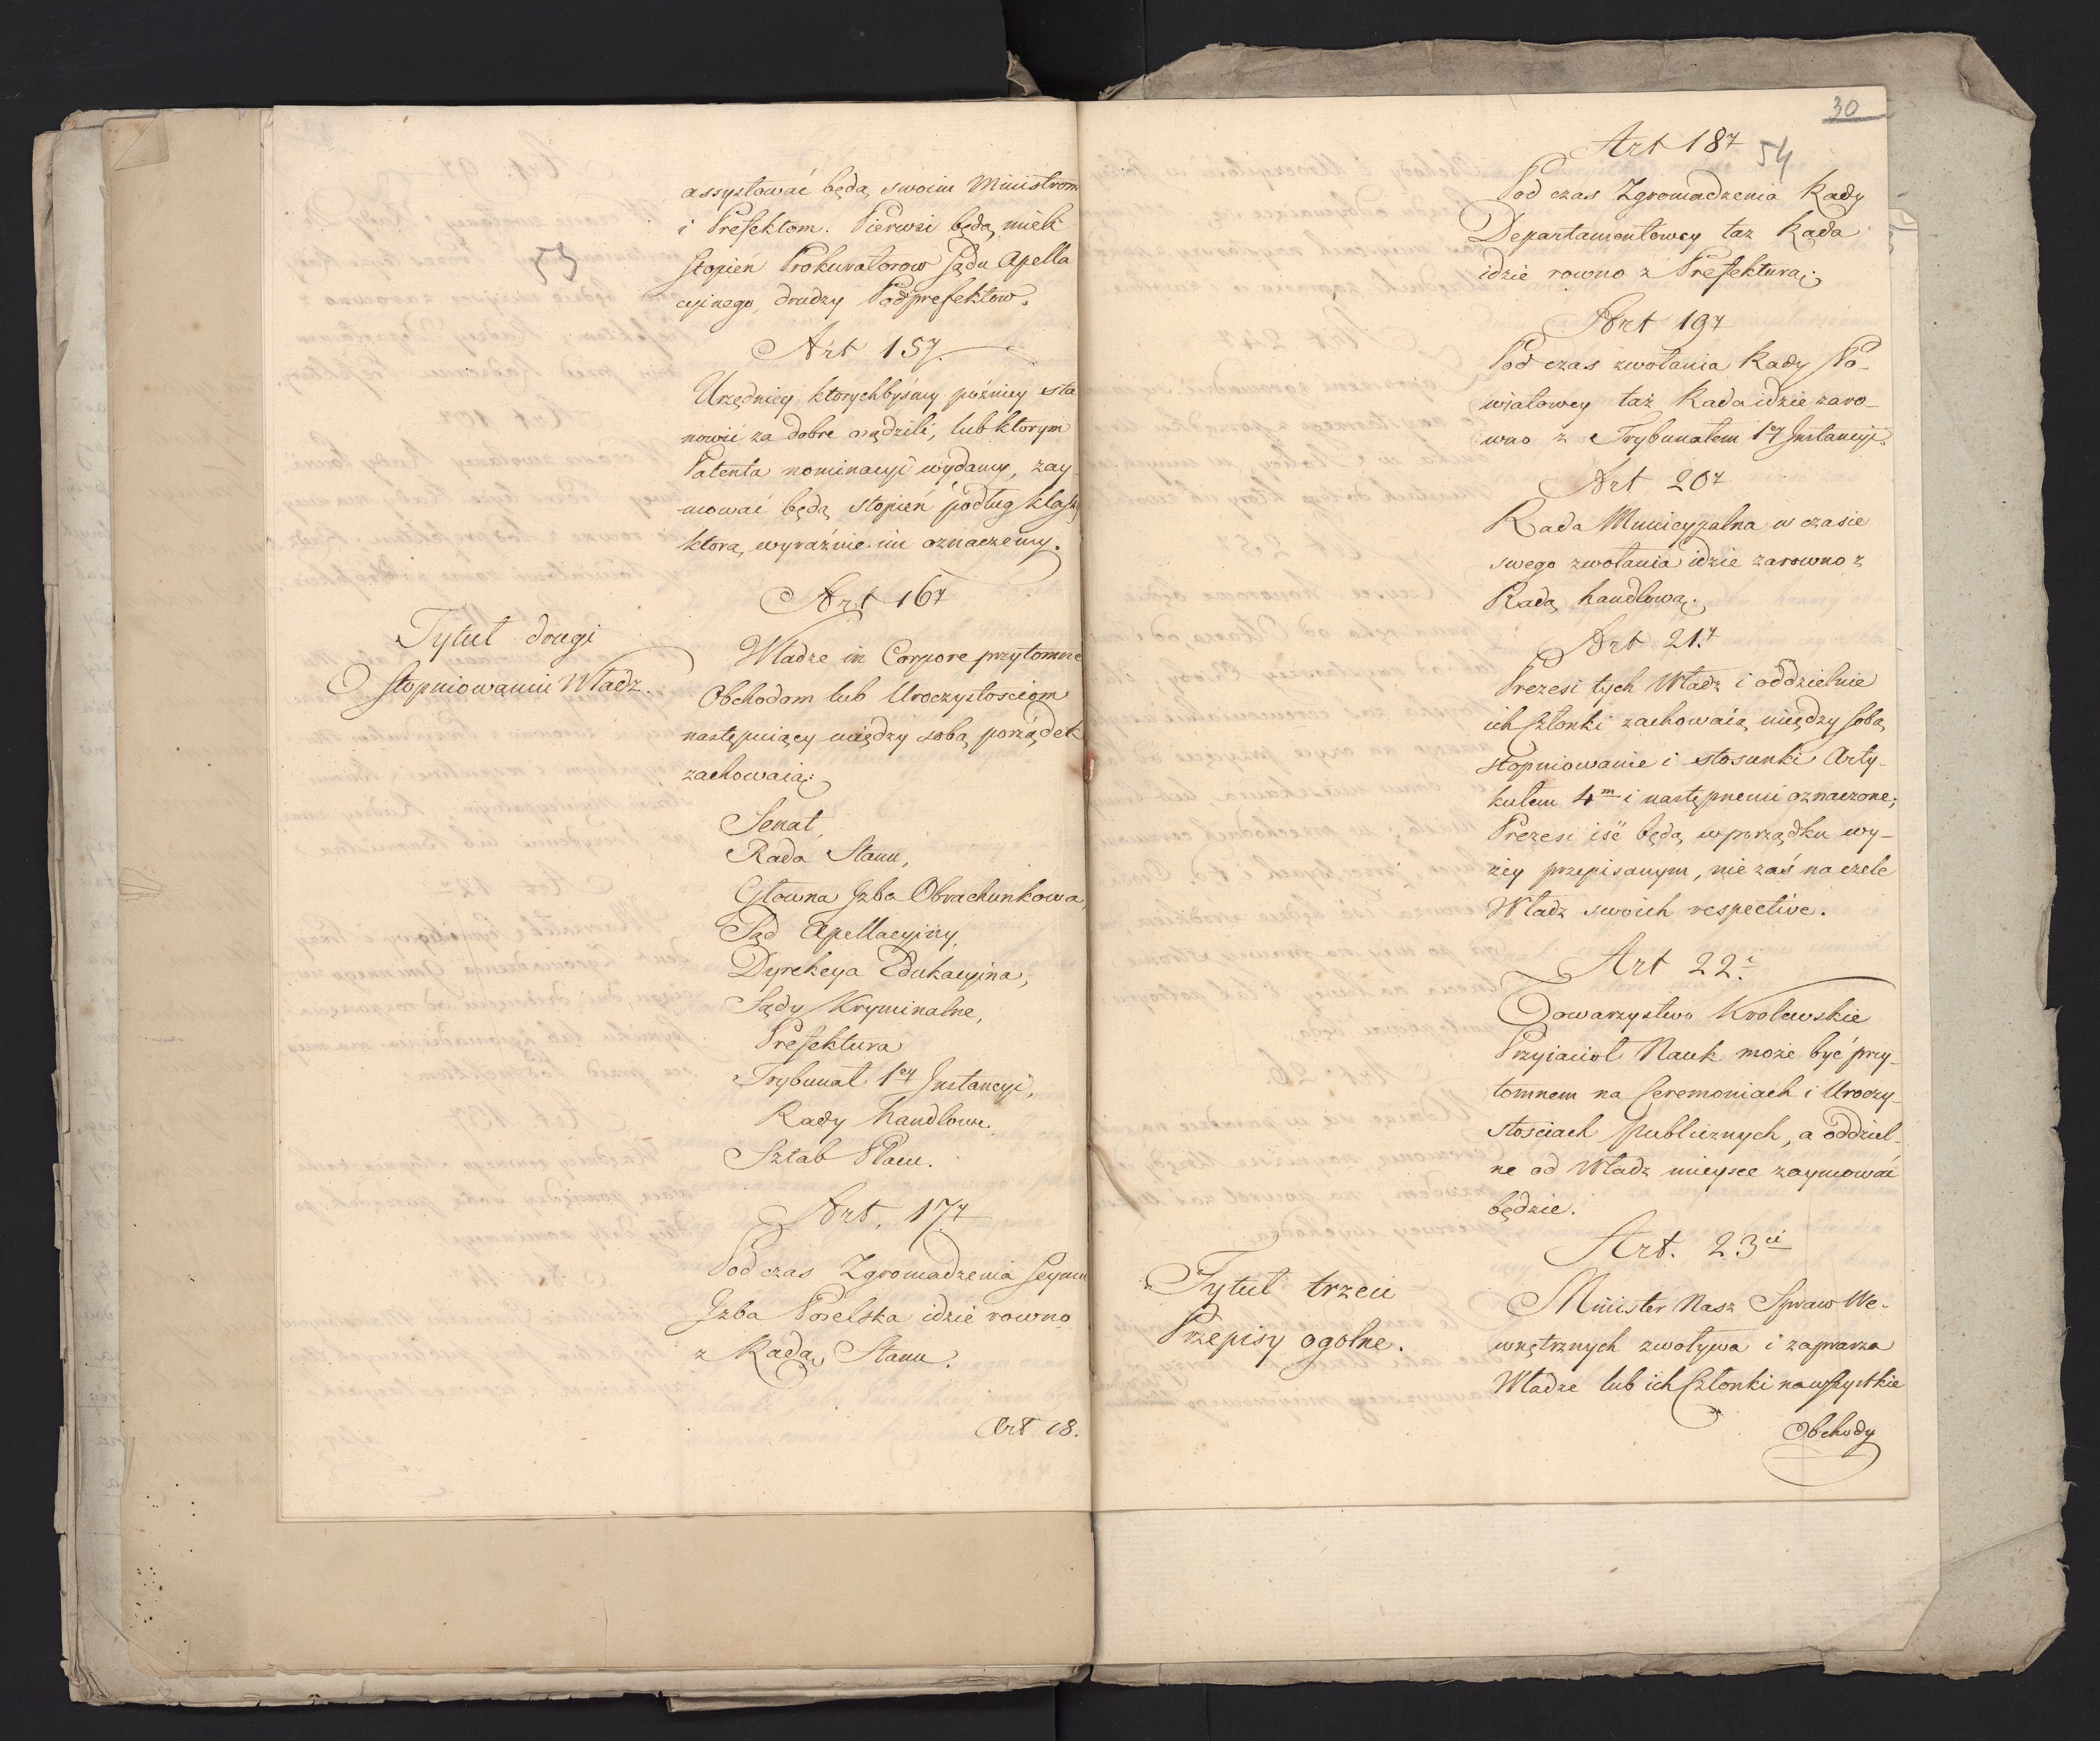 53
assystować będą swoim Ministrom
i Prefektom. Pierwsi będą mieli
stopień Prokuratorow Sądu Apella
cyinego, drudzy Podprefektow.
Art 15y.
Urzędnicy ktorychbyśmy poźniey sta
nowić za dobre osądzili, lub ktorym
Patenta nominacyi wydamy, zay
mować będą stopień podług klassy
ktorą wyraźnie im oznaczemy.
Art 16y
Tytuł drugi
O stopniowaniu Władz.
Władze in Corpore przytomne
Obchodom lub Uroczystosciom
następuiący między sobą porządek
zachowaią:
Senat,
Rada Stanu,
Głowna Jzba Obrachunkowa,
Sąd Apellacyiny,
Dyrekcya Edukacyina,
Sądy Kryminalne,
Prefektura
Trybunał 1ey Jnstancyi,
Rady handlowe.
Sztab Placu.
Art. 17y
Pod czas Zgromadzenia Seymu
Jzba Poselska idzie rowno
z Radą Stanu.
Art 18.
30
54
Art 18y
Pod czas Zgromadzenia Rady
Departamentowey taż Rada
idzie rowno z Prefekturą;
Art 19y
Pod czas zwołania Rady Po-
wiatowey taż Rada idzie zaro-
wno z Trybunałem 1ey Jnstancyi.
Art 20y
Rada Municypalna w czasie
swego zwołania idzie zarowno z
Radą handlową;
Art 21.y
Prezesi tych Władz i oddzielnie
ich Członki zachowaią między sobą
stopniowanie i stosunki Arty-
kułem 4m i następnemi oznaczone;
Prezesi iść będą w porządku wy-
żey przepisanym, nie zaś na czele
Władz swoich respective.
Art 22.i
Towarzystwo Krolewskie
Przyiacioł Nauk może być przy-
tomnem na Ceremoniach i Uroczy-
stościach publicznych, a oddziel-
ne od Władz mieysce zaymować
będzie.
Art. 23ci
Tytuł trzeci
Przepisy ogolne.
Minister Nasz Spraw We-
wnętrznych zwoływa i zaprasza
Władze lub ich Członki na wszystkie
Obchody